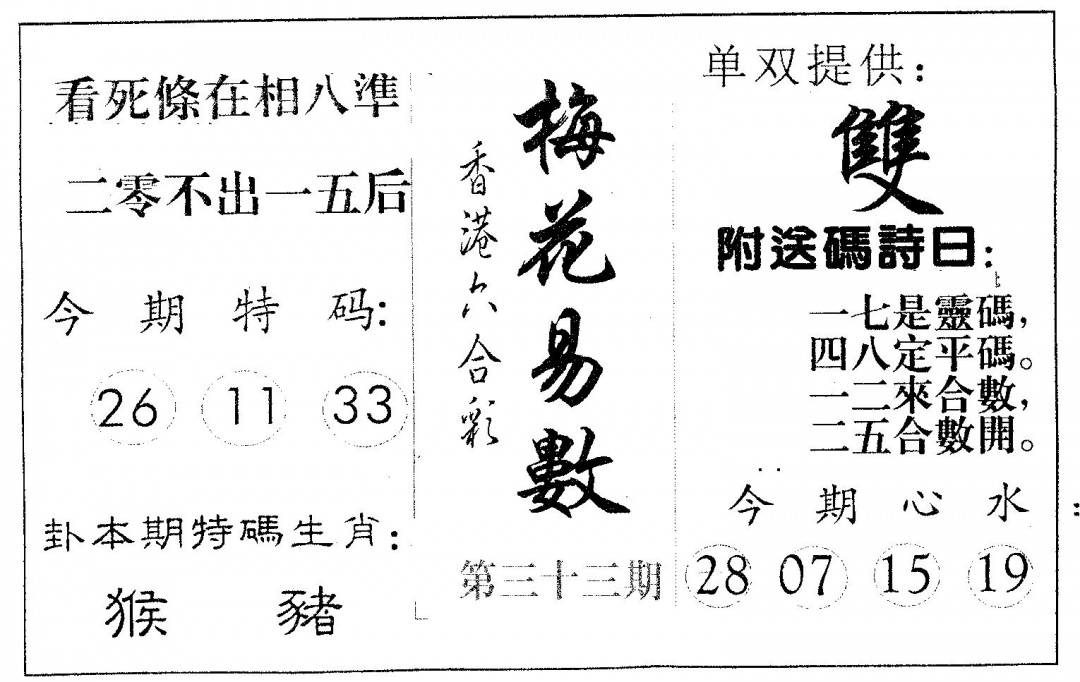 看死條在相八準
二零不出一五后
今期特码:
26 11 33
卦本期特碼生肖:
猴 豬
香港六合彩
梅花易數
第三十三期
单双提供:
雙
附送碼詩曰:
一七是靈碼,
四八定平碼。
一二來合數,
二五合數開。
今期心水:
28 07 15 19